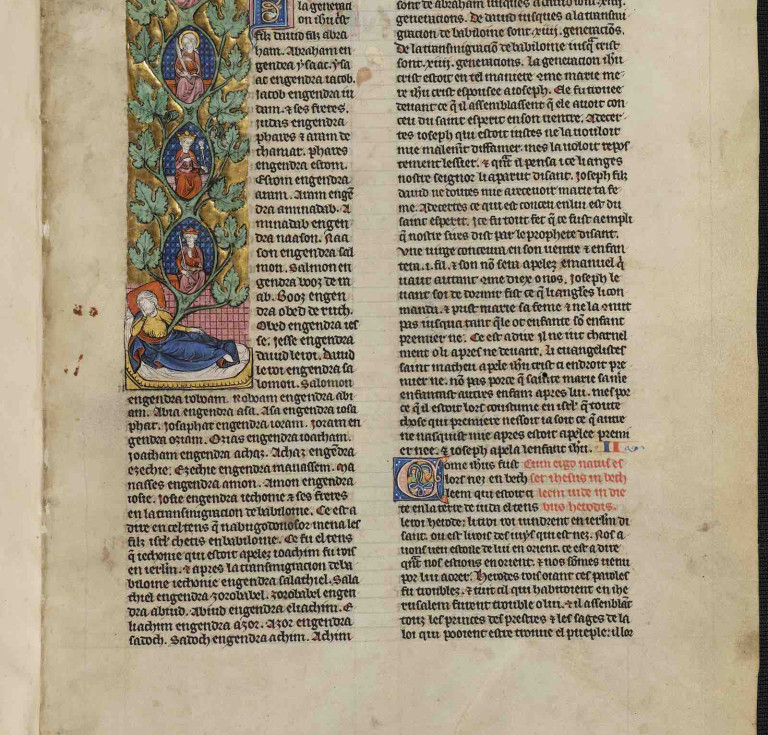 la generati
on ihu crist
filz dauid filz abra
ham. Abraham en
gendra ysaac. ysa
ac engendra iacob.
Iacob engendra iu
dam. ⁊ ses freres.
Iudas engendra
phares ⁊ aram de
thamar. phares
engendra esrom.
Esrom engendra
aram. Aram enge
dra aminadab. A
minadab engen
dra naason. Naa
son engendra sal
mon. Salmon en
gendra booz de ra
ab. Booz engen
dra obed de ruth.
Obed engendra ies
se. Iesse engendra
dauid le roi. Dauid
le roi engendra sa
lomon. Salomon
engendra roboam. Roboam engendra abi
am. Abia engendra asa. Asa engendra iosa
phat. Iosaphat engendra ioram. Ioram en
gendra oziam. Ozias engendra ioacham.
Joacham engendra achaz. Achaz engedra
ezechie. Ezechie engendra manassem. Ma
nasses engendra amon. Amon engendra
iosie. Iosie engendra iechonie ⁊ ses freres
en la transmigration de babiloine. Ce est a
dire en cel tens q̃ nabugodonosor mena les
filz isrl̃ chetis en babiloine. Ce fu el tens
q̃ iechonie qui estoit apelez ioachim fu rois
en ierlm̃. ⁊ apres la transmigration de ba
biloine iechonie engendra salathiel. Sala
thiel engendra zorobabel. zorobabel engen
dra abiud. Abiud engendra eliachim. E
liachim engendra azor. Azor engendra
sadoch. Sadoch engendra achim. Achim
sont de abraham iusques a dauid sont .xiiij.
generacions. De dauid iusques a la transmi
gracion de babiloine sont .xiiij. generaciõs.
De la transmigraciõ de babiloine iusq̃ crist
sont .xiiij. generacions. La generacion ihu
crist estoit en tel maniere que marie me
re ihu crist espousee a ioseph. Ele fu trouee
deuant ce q̃ il assemblassent q̃ ele auoit con
ceu du saint esperit en son uentre. Adecer
tes ioseph qui estoit iustes ne la uouloit
mie malemẽt diffamer. mes la uoloit repos
tement lessier. ⁊ quãt il pensa ice li angles
nostre seignor li aparut disant. Joseph filz
dauid ne doutes mie a receuoir marie ta fe
me. Adecertes ce qui est conceu en lui est du
saint esperit. Ice fu tout fet q̃ ce fust aempli
q̃ nostre sires dist par le prophete disant.
Vne uirge conceura en son uentre ⁊ enfan
tera .i. fil. ⁊ son nõ sera apelez emanuel q̃
uaut autant que diex o nos. Joseph le
uant soi de dormir fist ce q̃ li angles li con
manda. ⁊ prist marie sa feme ⁊ ne la cnut
pas iusqua tant q̃le ot enfante sõ enfant
premier ne. Ce est a dire il ne iut charnel
ment o li apres ne deuant. Li euangelistes
saint matheu apele ihu crist ci endroit pre
mier ne. nõ pas porce q̃ sainte marie sa me
enfantast autres enfanz apres lui. mes por
ce q̃ il estoit lors coustume en isrl̃ q̃ toute
chose qui premiere nessoit ia soit ce q̃ autre
ne nasquist mie apres estoit apelee premi
er nee. ⁊ ioseph apela lenfant ihu. II
Come ihus fust Cum ergo natus es
lors nez en beth set ihesus in beth
leem qui estoit ci leem iude in die
te en la terre de iuda el tens bus herodis.
le roi herode. li troi roi uindrent en ierlm̃ di
sant. ou est li rois des iuys qui est nez. Nos a
uons ueu estoile de lui en orient. ce est a dire
quãt nos estions en orient. ⁊ nos sõmes uenu
por lui aorer. Herodes rois oiant ces paroles
fu troublez. ⁊ tuit cil qui habitoient en ihe
rusalem furent trouble o lui. ⁊ il assemblãt
touz les princes des prestres ⁊ les sages de la
loi qui pooient estre troue el pueple. il lor